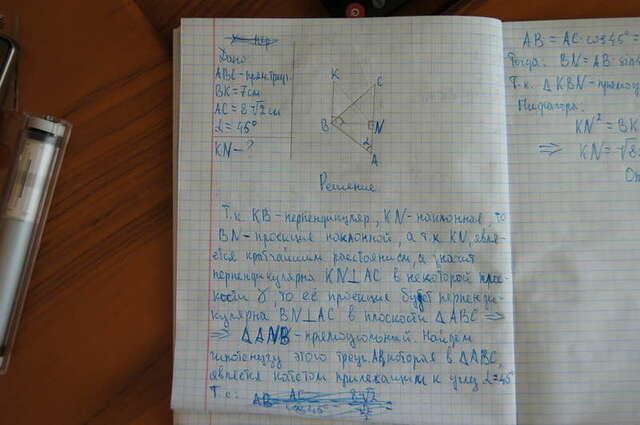 Дано
ABC-прям.треуг.
BK=7см
AC=8√2см
α=45°
KN-?
K
C
B
N
α
A
Решение
Т.к KB-перпендикуляр, KN-наклонная, то
BN-проекция наклонной, а т.к KN, явля-
ется кратчайшим расстоянием, а значит
перпендикулярна KN⊥AC в некоторой плос-
кости γ, то её проекция будет перпенди-
кулярна BN⊥AC в плоскости △ABC ⇒
⇒ △ANB-прямоугольный. Найдём
гипотенузу этого треуг. AB, которая в △ABC,
является катетом прилежащим к углу α=45°
Т.е:
AB = AC · cos 45° =
Тогда: BN=AB sin4
Т.к. △KBN-прямоуг
Пифагора:
KN² = BK
⇒ KN=√8
От